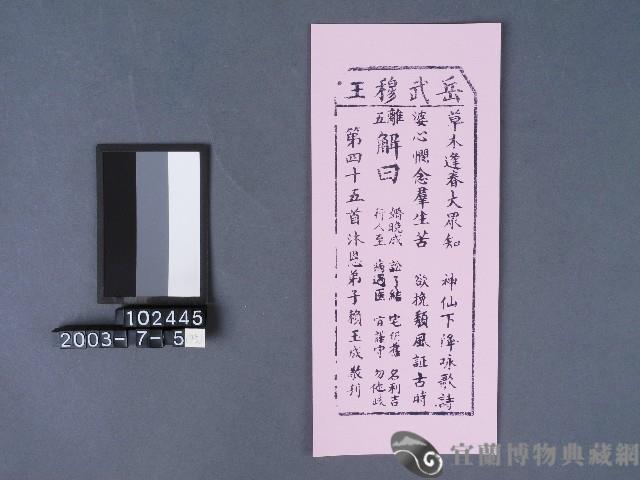 岳武穆王
草木逢春大眾知 神仙下降咏歌詩
婆心憫念羣生苦 欲挽頹風証古時
離五
解曰
婚晚成 訟了結 宅依舊 名利吉
行人至 病遇医 宜謹守 勿他歧
第四十五首沐恩弟子賴玉成敬刊
102445
2003-7-5
宜蘭博物典藏網